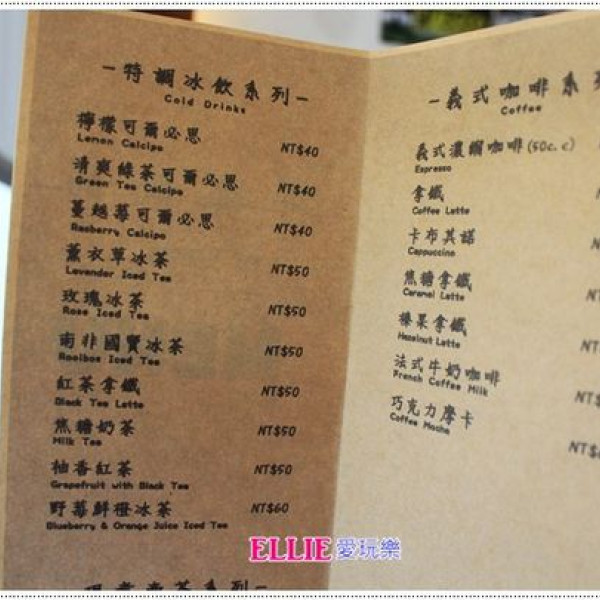 -特調冰飲系列-
Cold Drinks
檸檬可爾必思 NT$40
Lemon Calcipo
清爽綠茶可爾必思 NT$40
Green Tea Calcipo
蔓越莓可爾必思 NT$40
Rasberry Calcipo
薰衣草冰茶 NT$50
Lavender Iced Tea
玫瑰冰茶 NT$50
Rose Iced Tea
南非國寶冰茶 NT$50
Rooibos Iced Tea
紅茶拿鐵 NT$50
Black Tea Latte
焦糖奶茶 NT$50
Milk Tea
柚香紅茶 NT$50
Grapefruit with Black Tea
野莓鮮橙冰茶 NT$60
Blueberry & Orange Juice Iced Tea
-義式咖啡系列
Coffee
義式濃縮咖啡(50c.c)
Espresso
拿鐵
Coffee Latte
卡布其諾
Cappuccino
焦糖拿鐵
Caramel Latte
榛果拿鐵
Hazelnut Latte
法式牛奶咖啡
French Coffee Milk
巧克力摩卡
Coffee Mocha
ELLIE愛玩樂